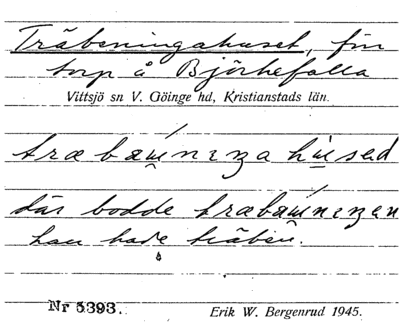 Träbeningahuset, fm
torp å Björkefalla
Vittsjö sn V. Göinge hd, Kristianstads län.
där bodde
han hade träben.
Nr 5393.
Erik W. Bergenrud 1945.